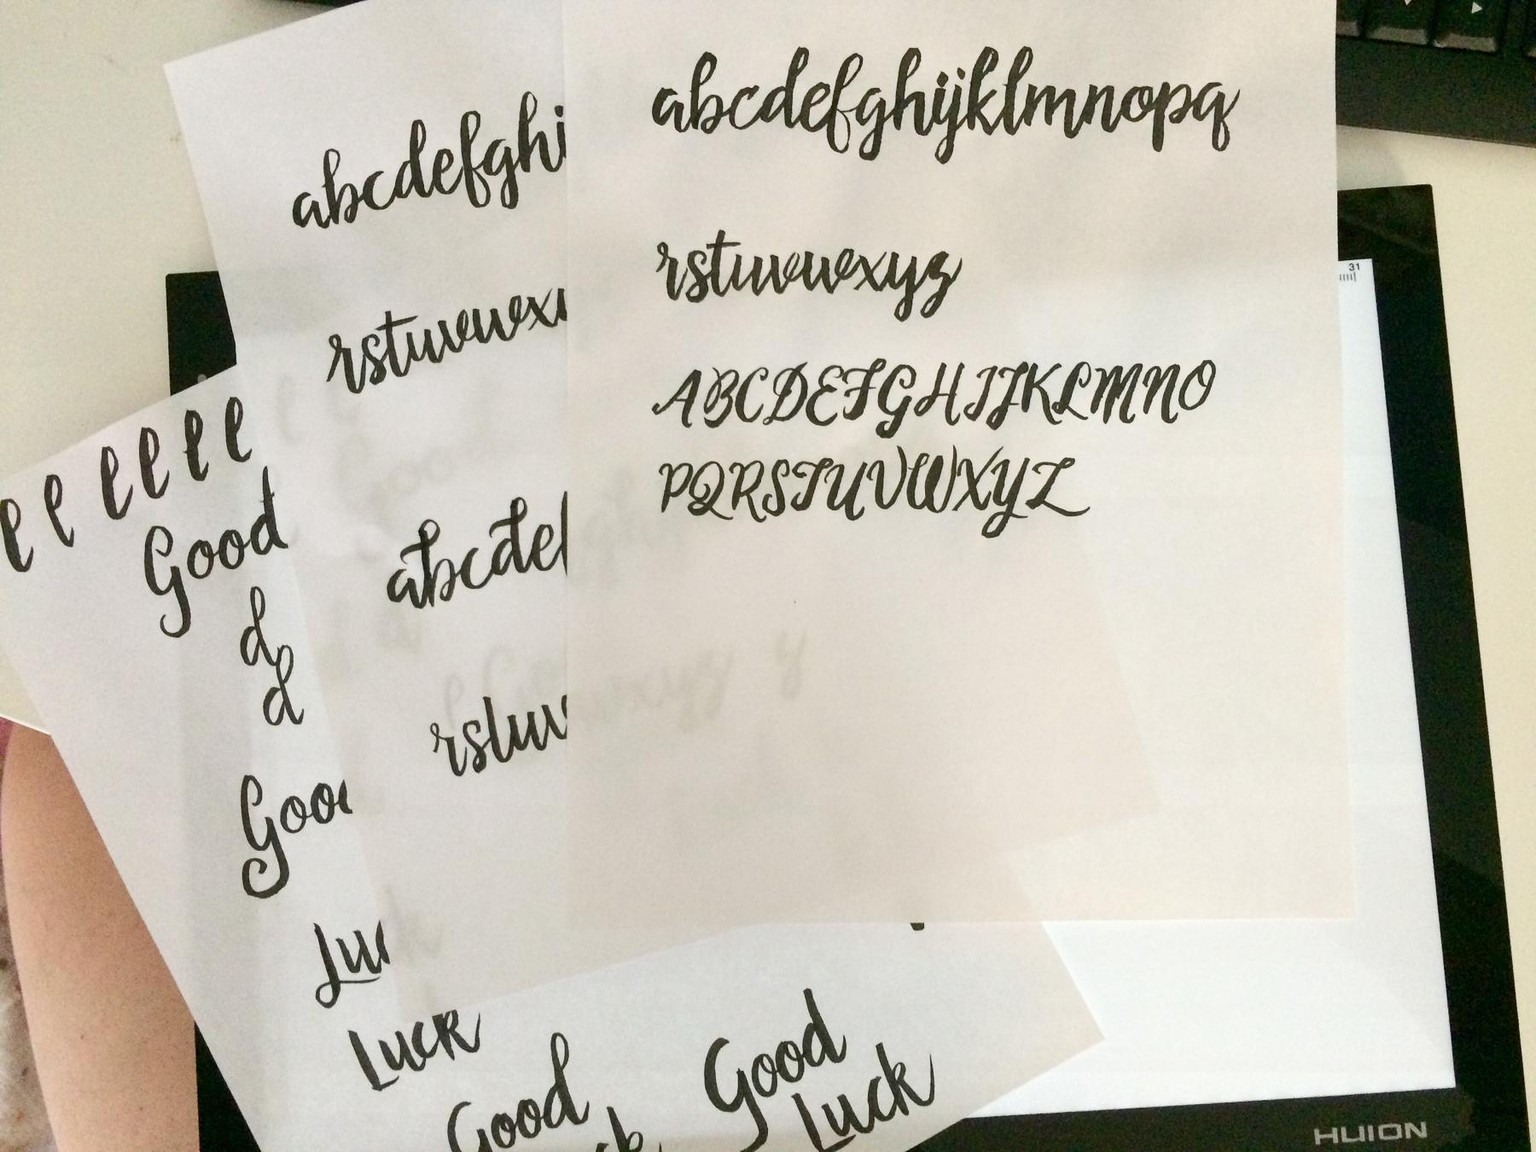 abcdefghijklmnopq
rstuvwxyz
ABCDEFGHIJKLMNO
PQRSTUVWXYZ
abcdefghi
rstuvwx
abcdef
rstuv
l l l l l l
Good
d
d
Good
Luc
Luck
Good
Good
Luck
31
HUION